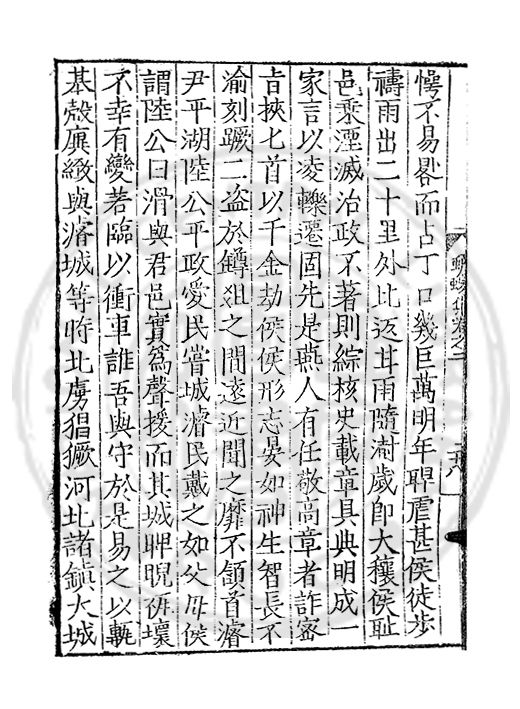 愕不易畧而占丁口幾巨萬明年睅虐甚侯徒步
禱雨出二十里外比返甘雨隨澍歲即大穰侯耻
邑乗湮滅治政不著則綜核史載章具典明成一
家言以凌轢遷固先是燕人有任敬高章者詐宻
㫖挾匕首以千金劫侯侯形志晏如神生智長不
渝刻蹶二盗於鐏爼之間遠近聞之靡不頷首濬
尹平湖陸公平政愛民嘗城濬民戴之如父母侯
謂陸公曰滑與君邑實為聲援而其城睥睨硑壞
不幸有變若臨以衝車誰吾與守於是易之以甎
基殻廉緻與濬城等時北虜猖獗河北諸鎮大城
蠛蠓集卷之二
二十八